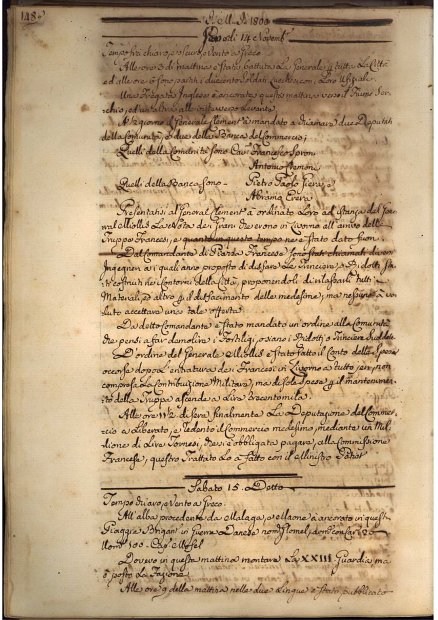 148.
A. M. D. 1800
Venerdì 14 Novemb.
Tempo fra chiaro, e oscuro, e Vento a Greco.
Alle ore 3 di mattina è stata battuta La Generale p tutta La Città
ed alle ore 6 sono partiti duecento Soldati con loro Ufiziale.
Una Fregata Inglese è ancorata questa mattina verso il Fiume Ser-
chio, ed un'altra
A mezzo giorno il Generale Clement à mandato a chiamare due Deputati
della Comunità, e due della Banca del Commercio;
Quelli della Comunità sono Cav. Francesco Sproni
Antonio
Quelli della Banca sono - Pietro Paolo
Abrama
Presentatisi al General Clement à ordinato Loro ad istanza del Gene-
ral Miollis La Nota dei Grani che erono in Livorno all'arrivo delle
Truppe Francesi, e quanto in questo tempo ne è stato dato fuori.
Dal Comandante di Piazza Francese sono stati chiamati diversi
Ingegneri a i quali anno proposto di disfare Le Trinciere, e Ridotti, sta-
ti costruiti nei Contorni della Città, proponendoli di rilasciarli tutti i
Materiali, ed altro p il disfacimento delle medesime, ma nessuno à vo-
luto accettare una tale offerta.
Da detto Comandante è stato mandato un ordine alla Comunità
che pensi a far demolire i Fortilizi, o siano i Ridotti, o Trinciere suddette.
D'ordine del Generale Miollis è stato fatto il Conto delle Spese
occorse dopo L'entratura de i Francesi in Livorno a tutto jeri, non
compresa La Contribuzione Militare, ma di sole Spese p il mantenimen-
to della Truppa ascende a Lire trecentomila.
Alle ore 11½ di sera finalmente La Deputazione del Commer-
cio à Liberato, e redento il Commercio medesimo mediante un Mil-
lione di Lire Tornesi, che si è obbligata pagare alla Commissione
Francese, questo Trattato Lo à fatto con il Ministro Petiet
Sabato 15. Detto
Tempo chiaro, e Vento a Greco.
All'alba procedente da Malaga, e Maone è ancorato in questa
Piaggia Brigantino Guerra Danese nom. con
Uomini 100 - Cap.
Doveva in questa mattina montare La XXIII Guardia ma
à posto La Fazione
Alle ore 9 della mattina nelle due Lingue è stato pubblicato